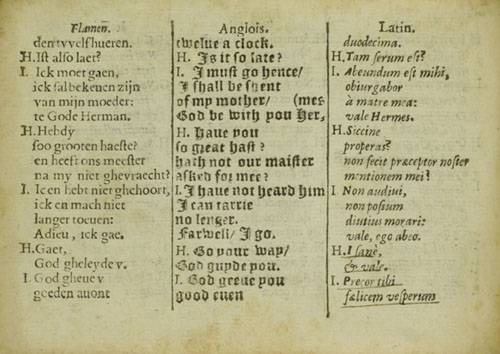 Flamen.
den tvvelfhueren.
H. Ist also laet?
I. Ick moet gaen,
ick sal bekenen zijn
van mijn moeder:
te Gode Herman.
H. Hebdy
soo grooten haeste?
en heeft ons meester
na my niet ghevraecht?
I. Ic en hebt niet ghehoort,
ick en mach niet
langer toeuen:
Adieu, ick gae.
H. Gaet,
God gheleyde v.
I. God gheue v
goeden auont
Anglois.
twelue a clock.
H. Is it so late?
I. I must go hence/
I shall be shent
of my mother/ (mes
God be with you Her,
H. haue you
so great hast?
hath not our maister
asked for mee?
I. I haue not heard him
I can tarrie
no lenger.
Farwell/ I go.
H. Go your way/
God guyde you.
I. God geeue you
good euen
Latin.
duodecima.
H. Tam serum est?
I. Abeundum est mihi,
obiurgabor
à matre mea:
vale Hermes.
H. Siccine
properas?
non fecit præceptor noster
mentionem mei?
I Non audiui,
non possum
diutius morari:
vale, ego abeo.
H. I sanè,
& vale.
I. Precor tibi
fælicem vesperum